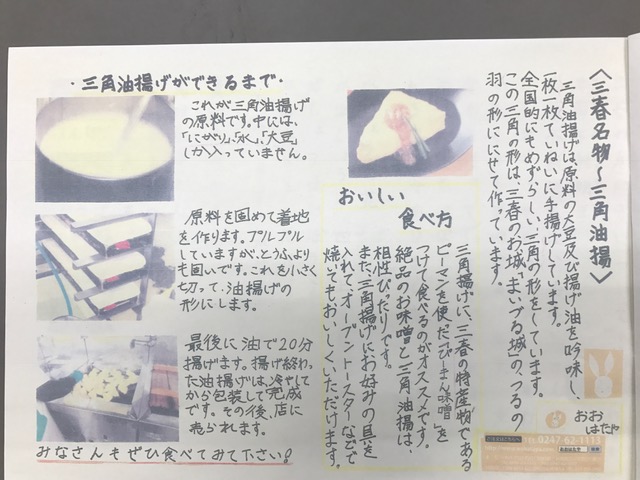 〈三春名物〜三角油揚〉
三角油揚げは、原料の大豆及び揚げ油を吟味し、
一枚一枚ていねいに手揚げしています。
全国的にもめずらしい、三角の形をしています。
この三角の形は、三春のお城、まいづる城」の、つるの
羽の形ににせて作っています。
おいしい
食べ方
三角揚げに、三春の特産物である
ピーマンを使た「ぴーまん味噌」を
つけて食べるのがオススメです。
絶品のお味噌と三角油揚げは、
相性ぴったりです。
また、三角揚げにお好みの具を
入れて、オーブントースターなどで
焼いてもおいしくいただけます。
・三角油揚げができるまで・
これが三角油揚げ
の原料です。中には、
「にがり」、「水」、「大豆」
しか入っていません。
原料を固めて着地
を作ります。プルプル
していますが、とうふより
も固いです。これを小さく
切って、油揚げの
形にします。
最後に油で20分
揚げます。揚げ終わっ
た油揚げは、冷やして
から包装して完成
です。その後、店に
売られます。
みなさんもぜひ食べてみて下さい!
おお
はたや
TEL 0247-62-1113